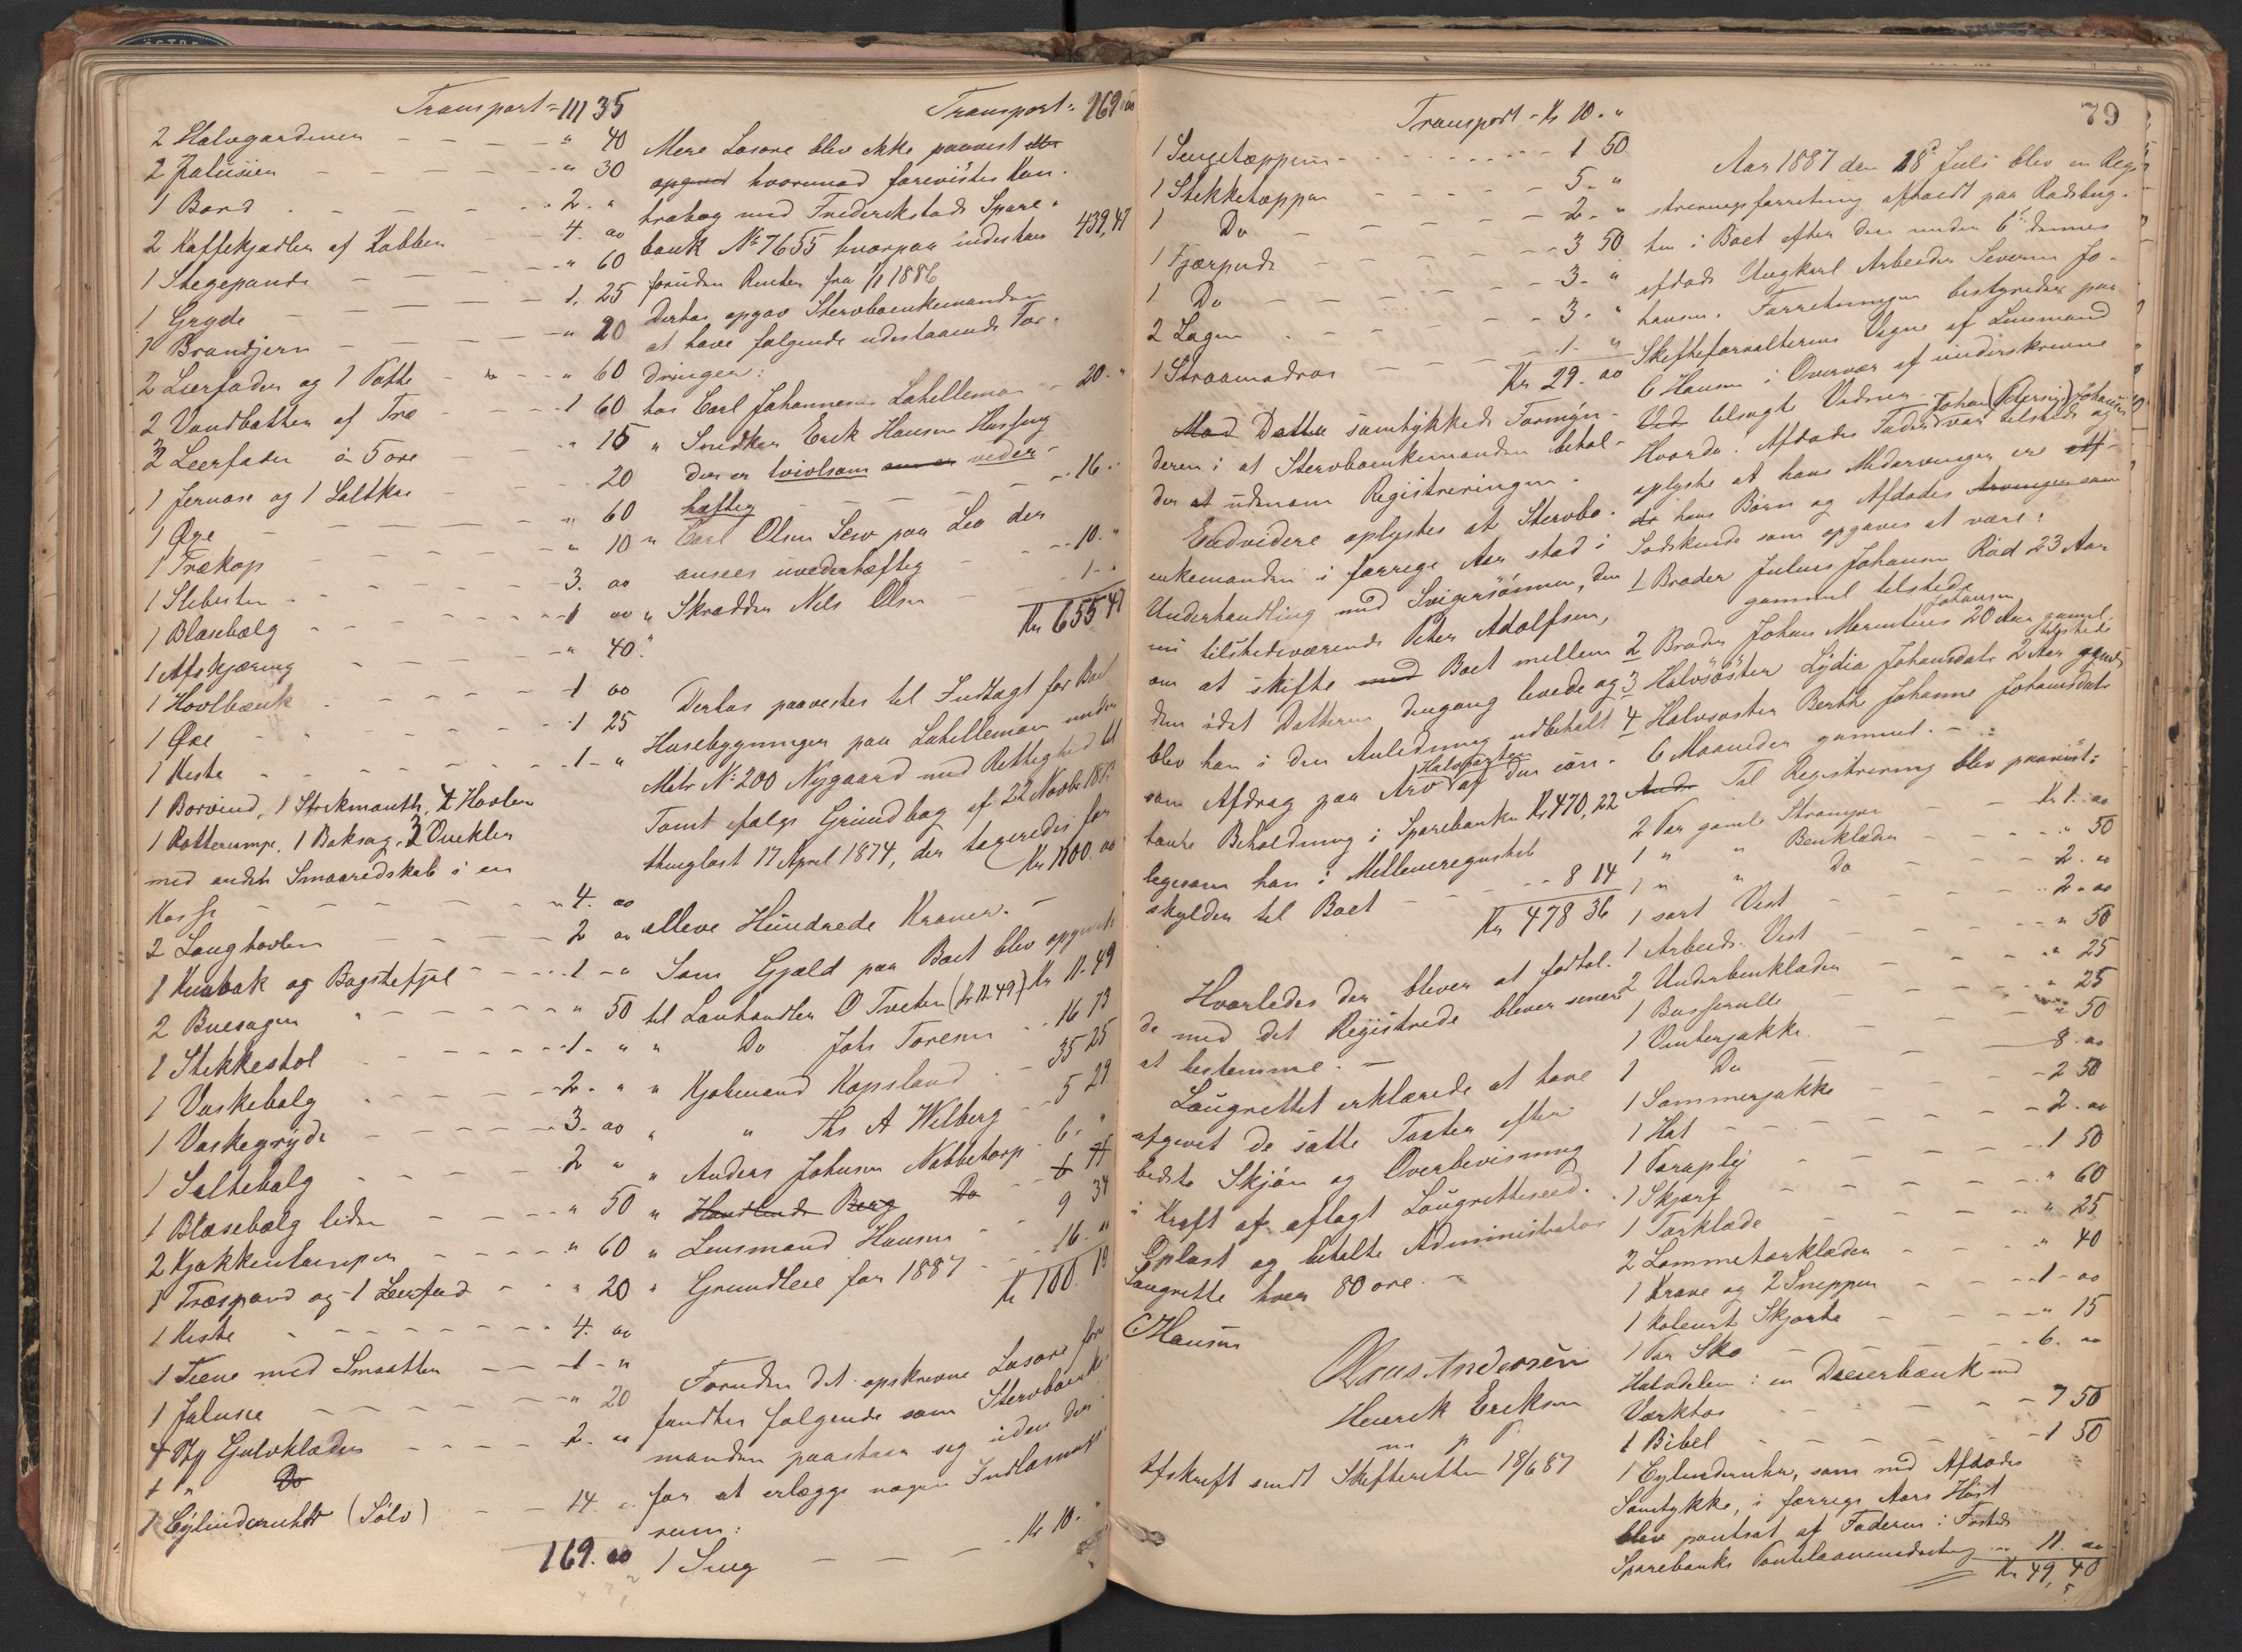 Transport = 111 35
2 Halvgardiner - - - " 40
2 Jalusier - - - " 30
1 Bord - - - 2. "
2 Kaffekjedler af Kobber - - 4. 00
1 Stegepande - - - " 60
1 Gryde - - - 1. 25
1 Brandjern - - - " 20
2 Leerfade og 1 Potte - - - " 60
2 Vandbøtter af Træ - - - 1 60
3 Leerfade à 5 øre - - - " 15
1 Jernøse og 1 Saltkar - - - 20
1 Øxe - - - " 60
1 Trækop - - - " 10
1 Slibesten - - - 3. 00
1 Blæsebælg - - - 1 00
1 Afskjæring - - - " 40
1 Høvlbænk - - - 1 00
1 Øxe - - - 1 25
1 Kiste - - - 1 - "
1 Borvind, 1 Strekmaath, 4 Høvler
1 Rotterumpe, 1 Baksag, 3 Vinkler
med andet Smaaredskab i en
Kasse - - - 4. 00
2 Langhøvler - - - 2 00
1 Knubak og Bagstefjel - - - 1 - "
2 Buesager - - - " 50
1 Stikkestol - - - 1 - "
1 Vaskebalg - - - 2. "
1 Vaskegryde - - - 3. 00
1 Saltebalg - - - 2 "
1 Blæsebælg liden - - - " 50
2 Kjøkkenlamper - - - " 60
1 Træspand og 1 Leerfad - - " 20
1 Kiste - - - 4. 00
1 Tiene med Smaatteri - - - 1 - "
1 Jalusie - - - " 20
4 Stk Gulvklæder - - - 2. 00
1 " Do
1 Cylinderuhr (Sølv) - - - 14. "
169. 00
Transport = 169 00
Mere Løsøre blev ikke paavist eller
opgivet hvorimod forevistes Kon-
trabog med Frederikstads Spare-
bank No 7655 hvorpaa indestaar 439,47
foruden Renter fra 1/1 1886
Derhos opgav Stervboenkemanden
at have følgende udestaaende For-
dringer:
hos Carl Johannesen Lahellemoen - 20. "
" Snedker Erik Hansen
der er tvivlsom om er veder-
hæftig - - - 16. "
" Carl Olsen Lew paa Leo der
ansees uvederhæftig - - - 10. "
" Skrædder Nils Olsen - - - 1 - "
Kr 655.47
Derhos paavistes til Indtægt for Boet
Husebygningen paa Lahellemoen under
Matr No 200 Nygaard med Rettighed til
Tomt ifølge Grundbog af 22 Novbr
thinglæst 17 April 1874, der taxeredes for
Kr 1100. 00
elleve Hundrede Kroner. -
Som Gjæld paa Boet blev opgivet
til Lanhandler O Tveter (Kr 11.49) Kr 11.49
" Do Johs Toresen - - 16 73
" Kjøbmand Kopsland - - 35 25
" " Ths A Wilberg - - 5 29
" Anders Johnsen Nabbetorp - 6. "
" Handlende Berg Do
" Lensmand Hansen - - 9 34
" Grundleie for 1887 - - 16. "
Kr 100. 10
Foruden det opskrevne Løsøre fore
fandtes følgende som Stervboenke
manden paastaar sig uden der
for at erlægge nogen Indløsnings
sum:
1 Seng - - - Kr 10. "
Transport - Kr 10. "
1 Sengetæppe - - - 1 50
1 Stikketæppe - - - 5. "
1 Do - - - 2. "
1 Fjærpude - - - 3 50
1 Do - - - 3. "
2 Lagen - - - 3. "
1 Straamadras - - - 1. "
Kr 29. 00
Mod Dette samtykkede Formyn-
deren i at Stervboenkemanden behol-
der at udenom Registreringen.
Endvidere oplystes at Stervbo-
enkemanden i forrige Aar stod i
Underhandling med Svigersønnen, den
nu tilstedeværende Peter Adolfsen,
om at skifte med Boet mellem
dem idet Datteren dengang levede og
blev han i den Anledning udbetalt
Halvparten
som Afdrag paa Arv af den iøvr-
tante Beholdning i Sparebanken Kr 470,22
ligesom han i Mellemregnskab
skylder til Boet - - - 8 14
Kr 478 36
Hvorledes der bliver at fadtol-
de med det Registrede bliver senere
at bestemme. -
Laugrettet erklærede at have
afgivet de satte Taxter efter
bedste Skjøn og Overbevisning
i Kraft af aflagt Laugrettesed.
Oplæst og betalte Administrator
Laugrette hver 80 øre. -
C Hansen
Klaus Andersen
Henrik Eriksen
m p P
Afskrift sendt Skifteretten 18/6 87
79
Aar 1887 den 18de Juli blev en Regi-
streringsforretning afholdt paa Rødsbug-
ten i Boet efter den under 6te dennes
afdøde Ungkarl Arbeider Severin Jo-
hansen. Forretningen bestyredes paa
Skifteforvalterens Vegne af Lensmand
C Hansen i Overvær af underskrevne
Ved tilsagte Vidner. Johan (Petersen) Johansen
Hvorda. Afdødes Fader var tilstede og
oplyste at hans Medarvinger ere af-
de hans Børn og Afdødes Arvinger som
Sødskende som opgaves at være:
1 Broder Julius Johansen Rød 23 Aar
gammel tilstede
Johansen
2 Broder Johan Marentius 20 Aar gammel
tilstede
3 Halvsøster Lydia Johansdatr 2 Aar gaml
4 Halvsøster Berthe Johanne Johansdatr
6 Maaneder gammel. -
Andr Til Registrering blev paavist:
2 Par gamle Strømper - - Kr 1. 00
1 " " Benklæder - - " 50
1 " " Do - - 2. 00
1 sort Vest - - 2. 00
1 Arbeids Vest - - " 50
2 Underbenklæder - - " 25
1 Busserulle - - " 25
1 Vinterjakke - - " 50
1 Do - - 8. 00
1 Sommerjakke - - 2 50
1 Hat - - 2. 00
1 Paraply - - 1 50
1 Skjærf - - " 60
1 Tørklæde - - " 25
2 Lommetørklæder - - " 40
1 Krave og 2 Snipper - - 1 - 00
1 koleurt Skjorte - - " 15
1 Par Sko - - 6. 00
Halvdelen i en Dreierbænk med
Værktøi - - 7 50
1 Bibel - - 1 50
1 Cylinderuhr, som med Afdødes
Samtykke, i forrige Aars Høst
blev pantsat af Faderen i
Sparebanks - - 11. 00
Kr 49,40